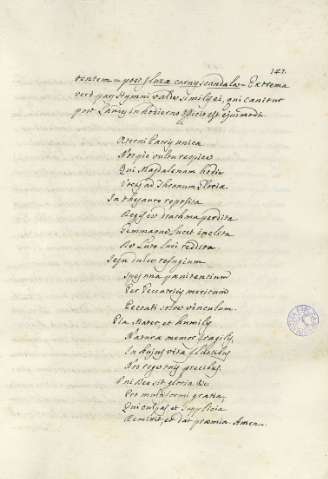 147.
Extrema
verò pars Hymni valde similis ei, qui canitur
per
in hodierno officio est ejusmodi.
Aeterni Patris unice
Nos pio vultu respice
Qui Magdalenam hodie
Vocas ad Thronum Gloriae
In thesauro reposita
Regis est drachma perdita
Gemmaque lucet inclita
De Luto luci reddita
Jesu dulce refugium
Spes una paenitentium
Per Peccatricis meritum
Peccati solve vinculum.
Pia Mater, et humilis
Naturae memor fragilis,
In hujus vitae fluctibus
Nos rege tuis precibus.
Uni Deo sit gloria
Pro multiformi gratia,
Qui culpas et supplicia
Remittit et dat praemia. Amen.